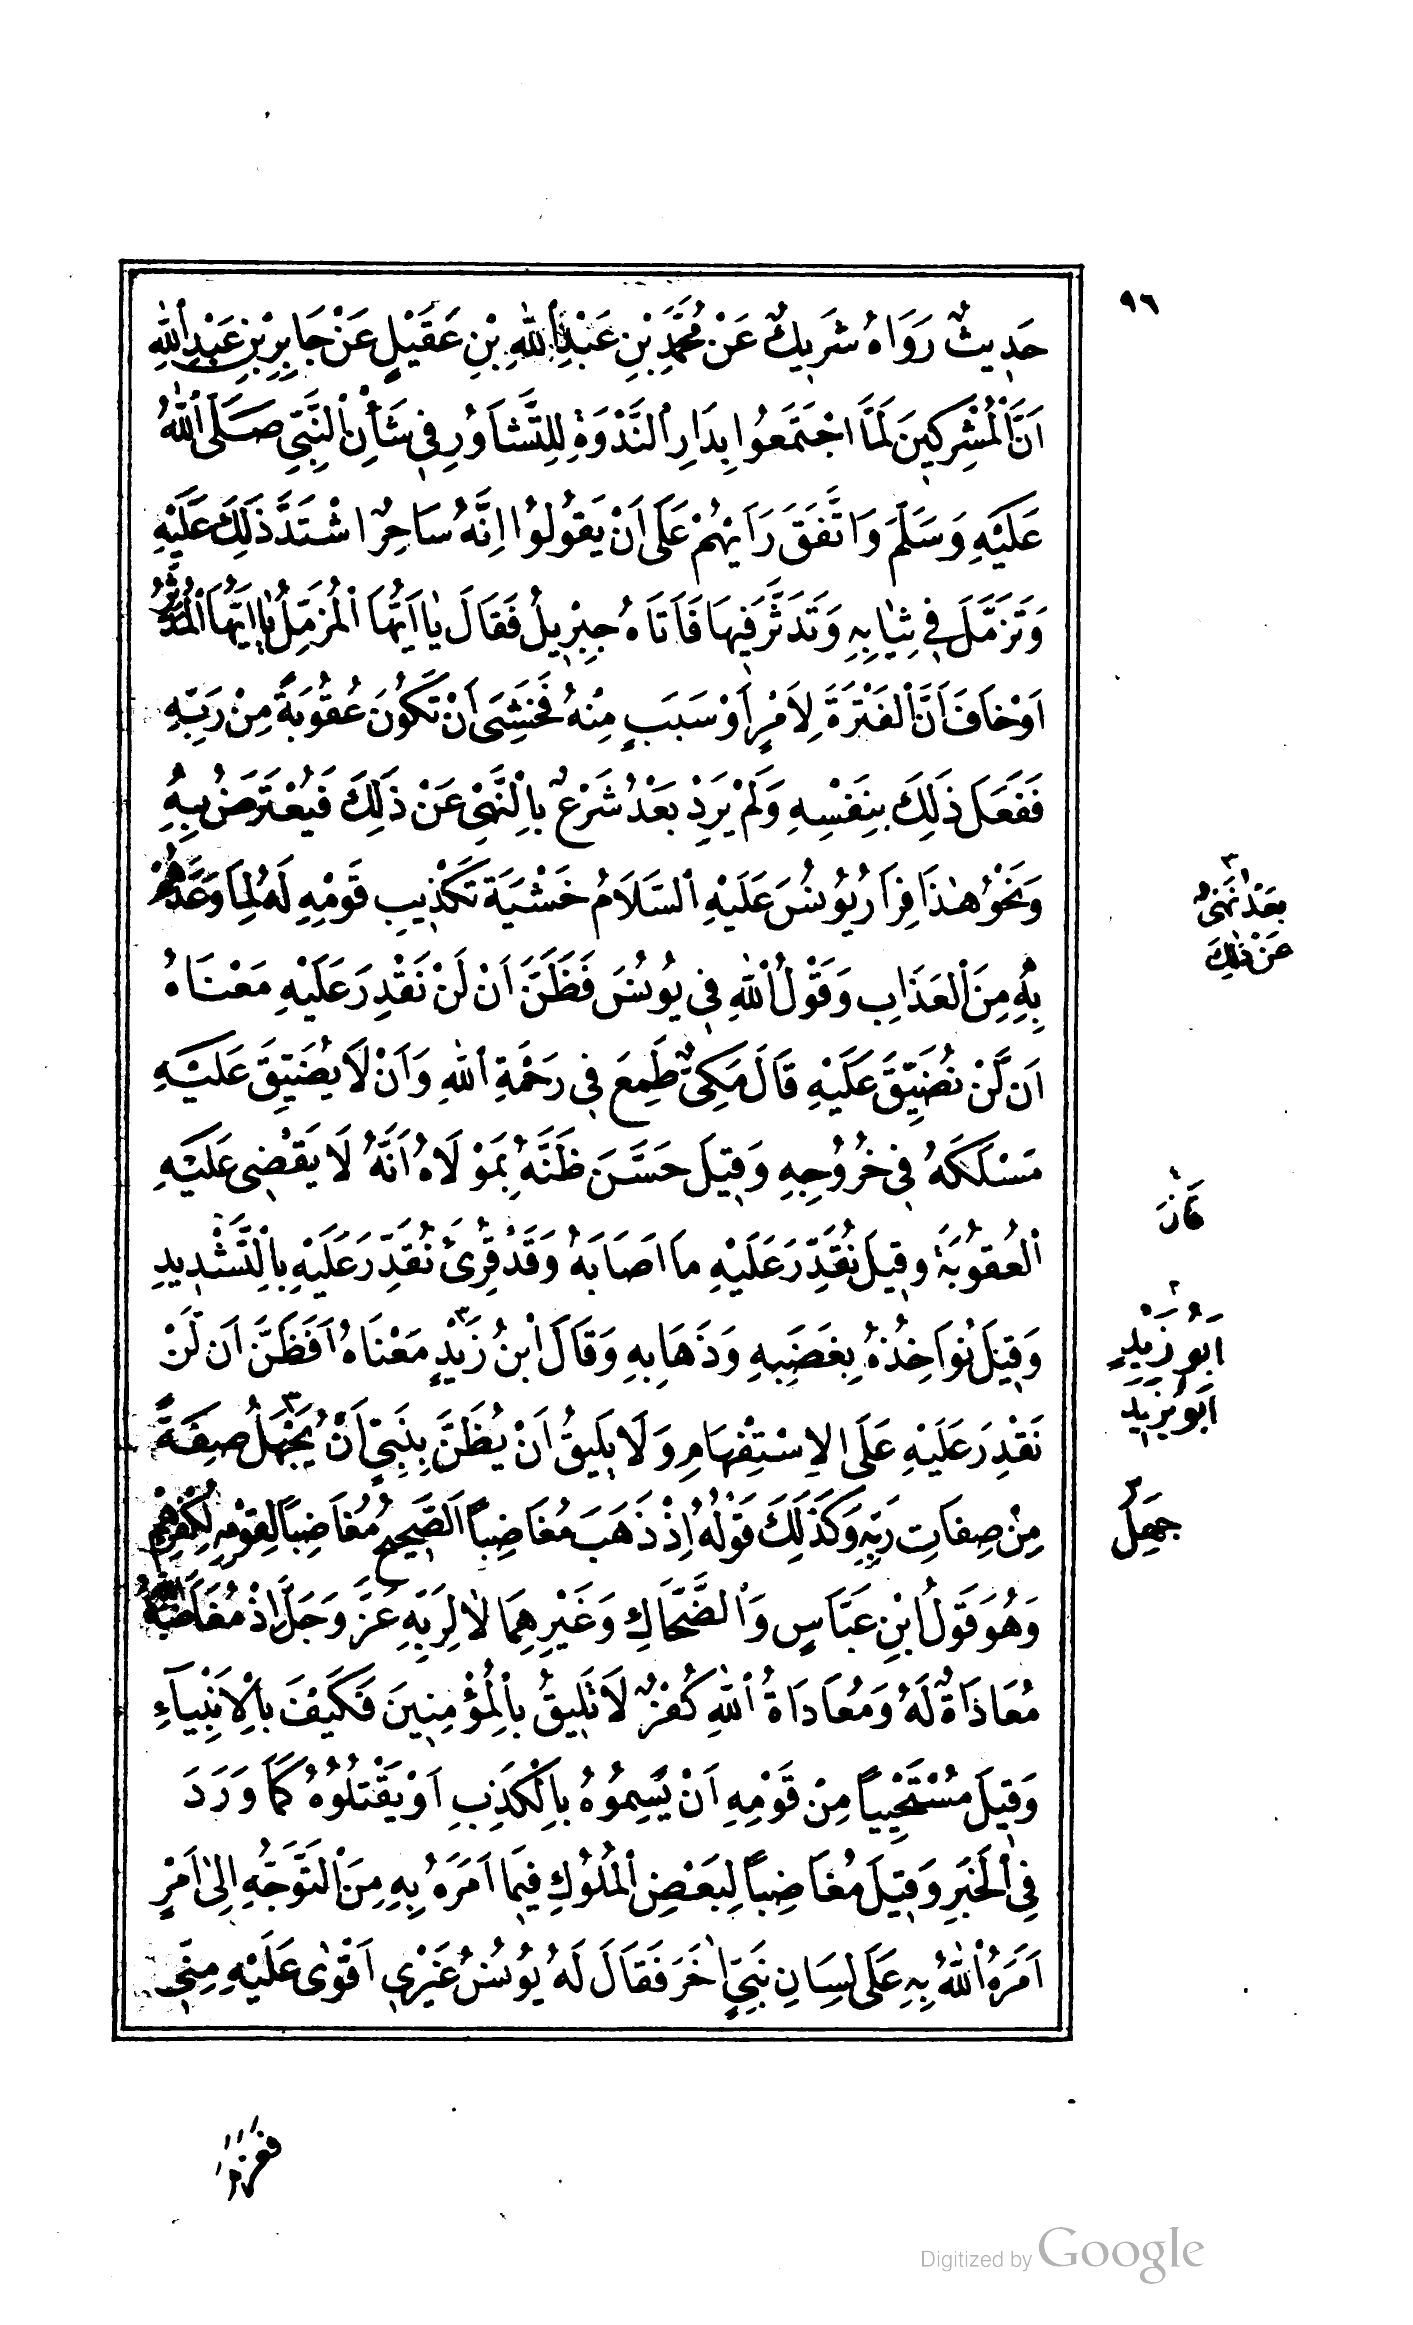 ٩٦
حَدِيثٌ رَوَاهُ شَرِيكٌ عَنْ مُحَمَّدِ بْنِ عَبْدِ اللهِ بْنِ عَقِيلٍ عَنْ جَابِرِ بْنِ عَبْدِ اللهِ
اَنَّ الْمُشْرِكِينَ لَمَّا اجْتَمَعُوا بِدَارِ النَّدْوَةِ لِلتَّشَاوُرِ فِي شَأْنِ النَّبِيِّ صَلَّى اللهُ
عَلَيْهِ وَسَلَّمَ وَاتَّفَقَ رَاْيُهُمْ عَلَى اَنْ يَقُولُوا اِنَّهُ سَاحِرٌ اشْتَدَّ ذَلِكَ عَلَيْهِ
وَتَزَمَّلَ فِي ثِيَابِهِ وَتَدَثَّرَ فِيهَا فَاَتَاهُ جِبْرِيلُ فَقَالَ يَا اَيُّهَا الْمُزَّمِّلُ يَا اَيُّهَا الْمُدَّثِّرُ
اَوْ خَافَ اَنَّ الْفَتْرَةَ لِاَمْرٍ اَوْ سَبَبٍ مِنْهُ فَخَشِىَ اَنْ تَكُونَ عُقُوبَةً مِنْ رَبِّهِ
فَفَعَلَ ذَلِكَ بِنَفْسِهِ وَلَمْ يَرِدْ بَعْدُ شَرْعٌ بِالنَّهْىِ عَنْ ذَلِكَ فَيُعْتَرَضُ بِهِ
وَنَحْوُ هٰذَا فِرَارُ يُونُسَ عَلَيْهِ السَّلَامُ خَشْيَةَ تَكْذِيبِ قَوْمِهِ لَهُ لِمَا وَعَدَهُمْ
بِهِ مِنَ الْعَذَابِ وَقَوْلُ اللهِ فِي يُونُسَ فَظَنَّ اَنْ لَنْ نَقْدِرَ عَلَيْهِ مَعْنَاهُ
اَنْ لَنْ نُضَيِّقَ عَلَيْهِ قَالَ مَكِّىٌّ طَمِعَ فِي رَحْمَةِ اللهِ وَاَنْ لَا يُضَيِّقَ عَلَيْهِ
مَسْلَكَهُ فِي خُرُوجِهِ وَقِيلَ حَسَّنَ ظَنَّهُ بِمَوْلَاهُ اَنَّهُ لَا يَقْضِى عَلَيْهِ
الْعُقُوبَةَ وَقِيلَ نُقَدِّرَ عَلَيْهِ مَا اَصَابَهُ وَقَدْ قُرِئَ نُقَدِّرَ عَلَيْهِ بِالتَّشْدِيدِ
وَقِيلَ نُوَاخِذُهُ بِغَضَبِهِ وَذَهَابِهِ وَقَالَ ابْنُ زَيْدٍ مَعْنَاهُ اَفَظَنَّ اَنْ لَنْ
نَقْدِرَ عَلَيْهِ عَلَى الِاسْتِفْهَامِ وَلَا يَلِيقُ اَنْ يُظَنَّ بِنَبِيٍّ اَنْ يَجْهَلَ صِفَةً
مِنْ صِفَاتِ رَبِّهِ وَكَذَلِكَ قَوْلُهُ اِذْ ذَهَبَ مُغَاضِبًا الصَّحِيحُ مُغَاضِبًا لِقَوْمِهِ لِكُفْرِهِمْ
وَهُوَ قَوْلُ ابْنِ عَبَّاسٍ وَالضَّحَّاكِ وَغَيْرِهِمَا لَا لِرَبِّهِ عَزَّ وَجَلَّ اِذْ مُغَاضَبَةُ اللهِ
مُعَادَاةٌ لَهُ وَمُعَادَاةُ اللهِ كُفْرٌ لَا تَلِيقُ بِالْمُؤْمِنِينَ فَكَيْفَ بِالْاَنْبِيَآءِ
وَقِيلَ مُسْتَحْيِيًا مِنْ قَوْمِهِ اَنْ يَسِمُوهُ بِالْكَذِبِ اَوْ يَقْتُلُوهُ كَمَا وَرَدَ
فِي الْخَبَرِ وَقِيلَ مُغَاضِبًا لِبَعْضِ الْمُلُوكِ فِيمَا اَمَرَهُ بِهِ مِنَ التَّوَجُّهِ اِلَى اَمْرٍ
اَمَرَهُ اللهُ بِهِ عَلَى لِسَانِ نَبِيٍّ اٰخَرَ فَقَالَ لَهُ يُونُسُ غَيْرِي اَقْوٰى عَلَيْهِ مِنِّي
٣
بَعْدُ نَهْىٌ
عَنْ ذٰلِكَ
١
٢
اَبُو زَيْدٍ
اَبُو يَزِيدَ
٣
جَهِلَ
فعزم
Digitized by Google